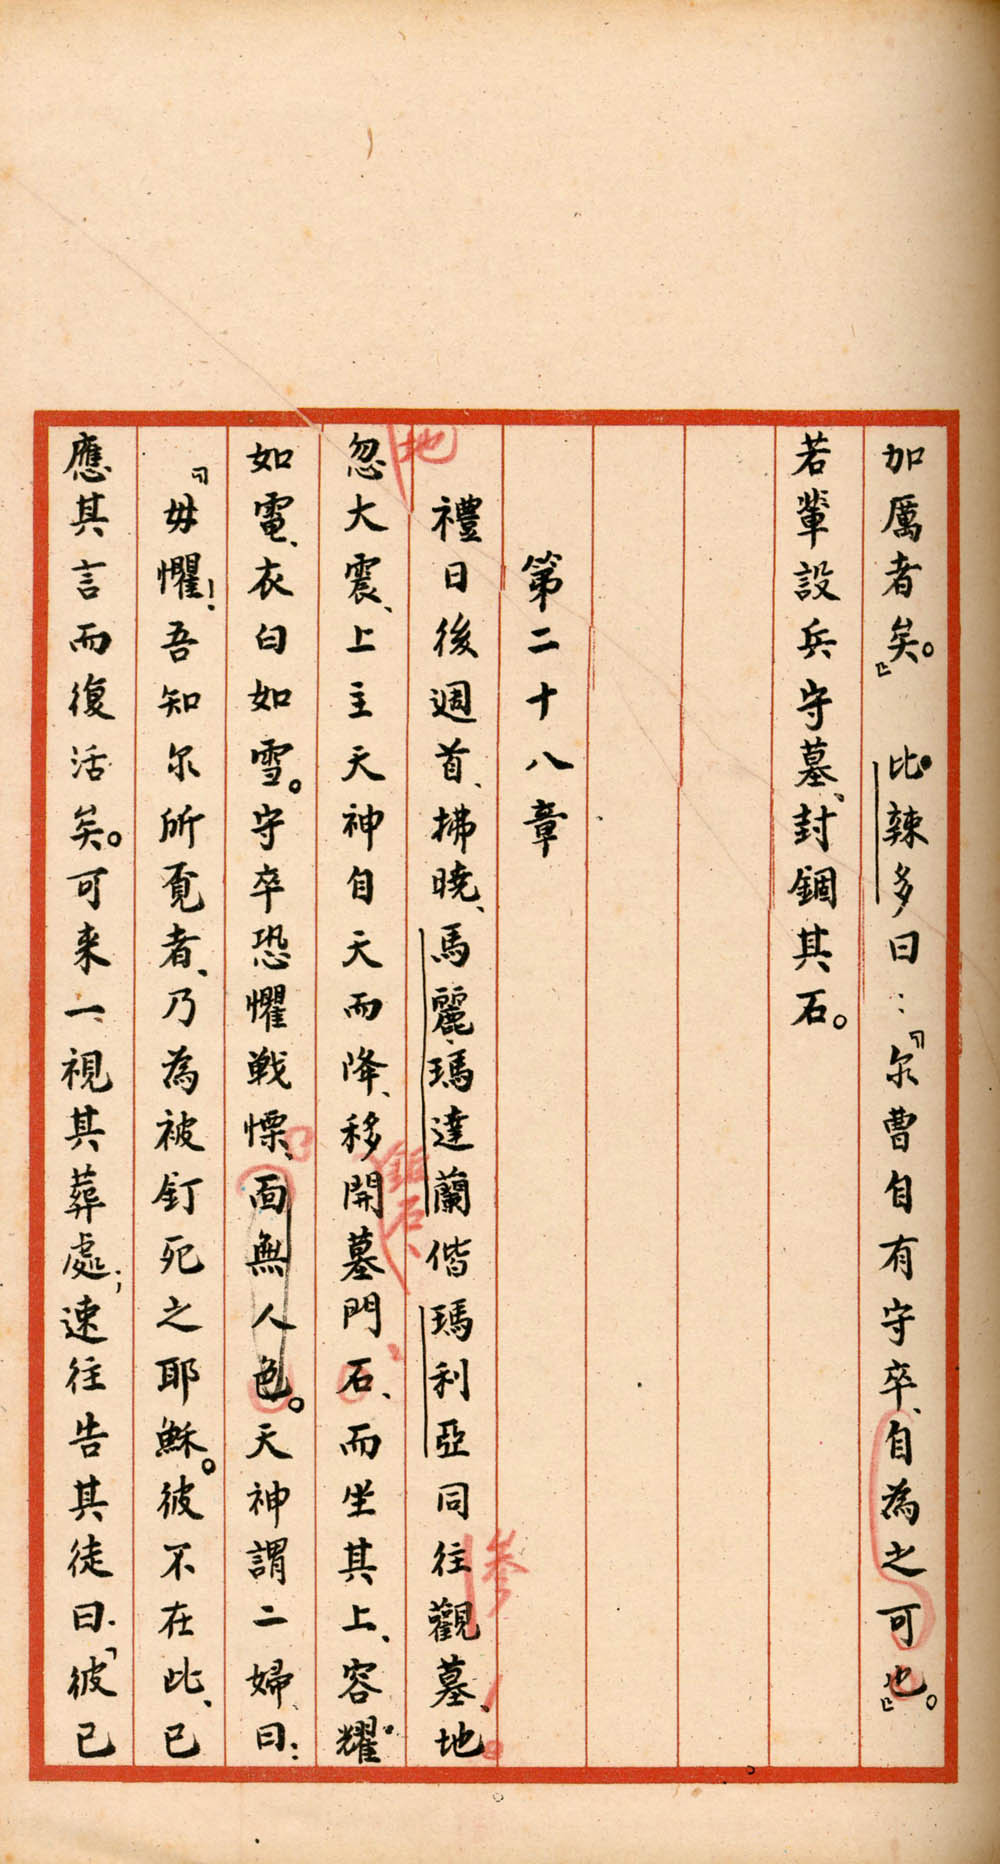 加厲者矣。」　比辣多曰：「尔曹自有守卒、自為之可也。」
若輩設兵守墓、封錮其石。
第二十八章
禮日後週首、拂曉、馬麗瑪達蘭偕瑪利亞同往觀墓、地
參
地
忽大震、上主天神自天而降、移開墓門石、而坐其上、容耀
石
如電、衣白如雪。守卒恐懼戰慄、面無人色。天神謂二婦曰：
「毋懼！吾知尔所覓者、乃為被釘死之耶穌。彼不在此、已
應其言而復活矣。可來一視其葬處；速往告其徒曰．「彼已